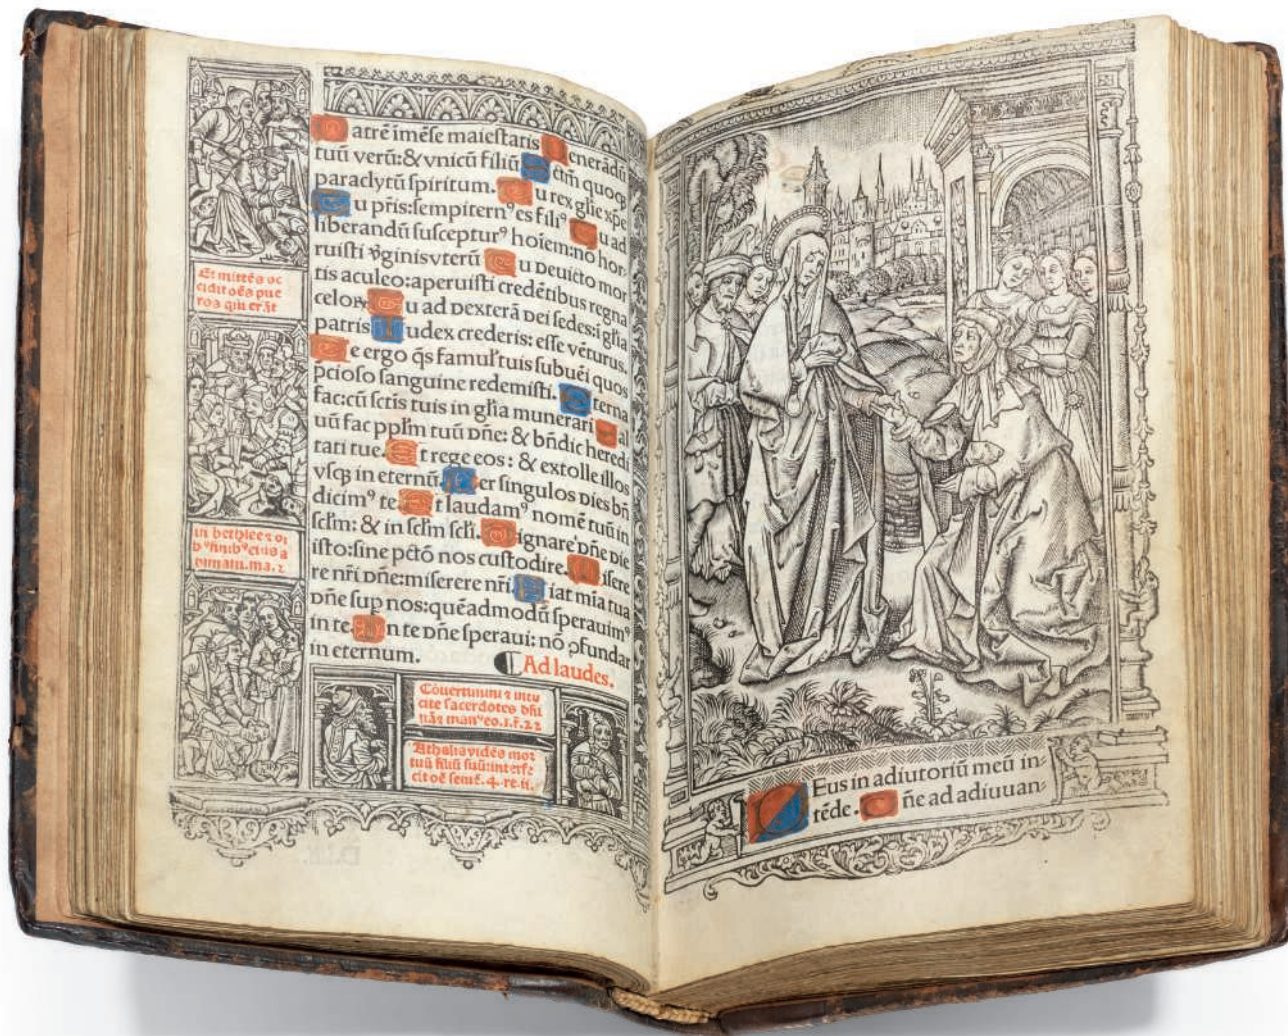 Et mittēs oc
cidit oēs pue
ros qui erāt
in bethlee ⁊ oī
bꝰ finibꝰ eius a
bimatu. ma. 2
Patrē īmēse maiestatis Venerādū
tuū verū: & vnicū filiū Sctm̄ quoqꝫ
paraclytū spiritum. Tu rex gl̄ie xp̄e
Tu pr̄is: sempiternꝰ es filiꝰ Tu ad
liberandū susceptur⁹ hoīem: nō hor-
ruisti v̄ginis vterū Tu deuicto mor
tis aculeo: aperuisti credētibus regna
celoꝝ Tu ad dexterā dei sedes: ī gl̄ia
patris Iudex crederis: esse vēturus.
Te ergo q̄s famul' tuis subuēi quos
p̄cioso sanguine redemisti. Eterna
fac: cū sctīs tuis in gl̄ia munerari Sal
uū fac ppl̄m tuū dn̄e: & bn̄dic heredi
tati tue. Et rege eos: & extolle illos
vsqꝫ in eternū. Per singulos dies bn̄
dicimꝰ te. Et laudamꝰ nomē tuū in
scl̄m: & in scl̄m scl̄i. Dignare dn̄e die
isto: sine pctō nos custodire. Misere
re nr̄i dn̄e: miserere nr̄i. Fiat mīa tua
dn̄e sup nos: quēadmodū sperauimꝰ
in te. In te dn̄e speraui: nō ꝯfundar
in eternum.
Ad laudes.
Cōuertimini ⁊ intu
cite sacerdotes dn̄i
Athalia vidēs mor
tuū filiū suū: interfe
cit oē semē. 4. re. ii.
Deus in adiutoriū meū in-
tēde. Dn̄e ad adiuuan-